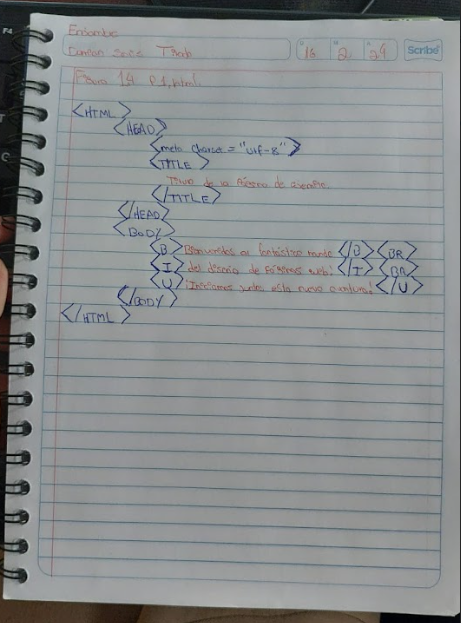 16 2 24 Scribe
<HTML>
<HEAD>
<meta charset="utf-8">
<TITLE>
Titulo de la Página de
</TITLE>
</HEAD>
<BODY>
<B> Bienvenidos al fantástico mundo </B> <BR>
<I> del diseño de Páginas web! </I> <BR>
<U> ¡Iniciamos juntos esta nueva aventura! </U>
</BODY>
</HTML>